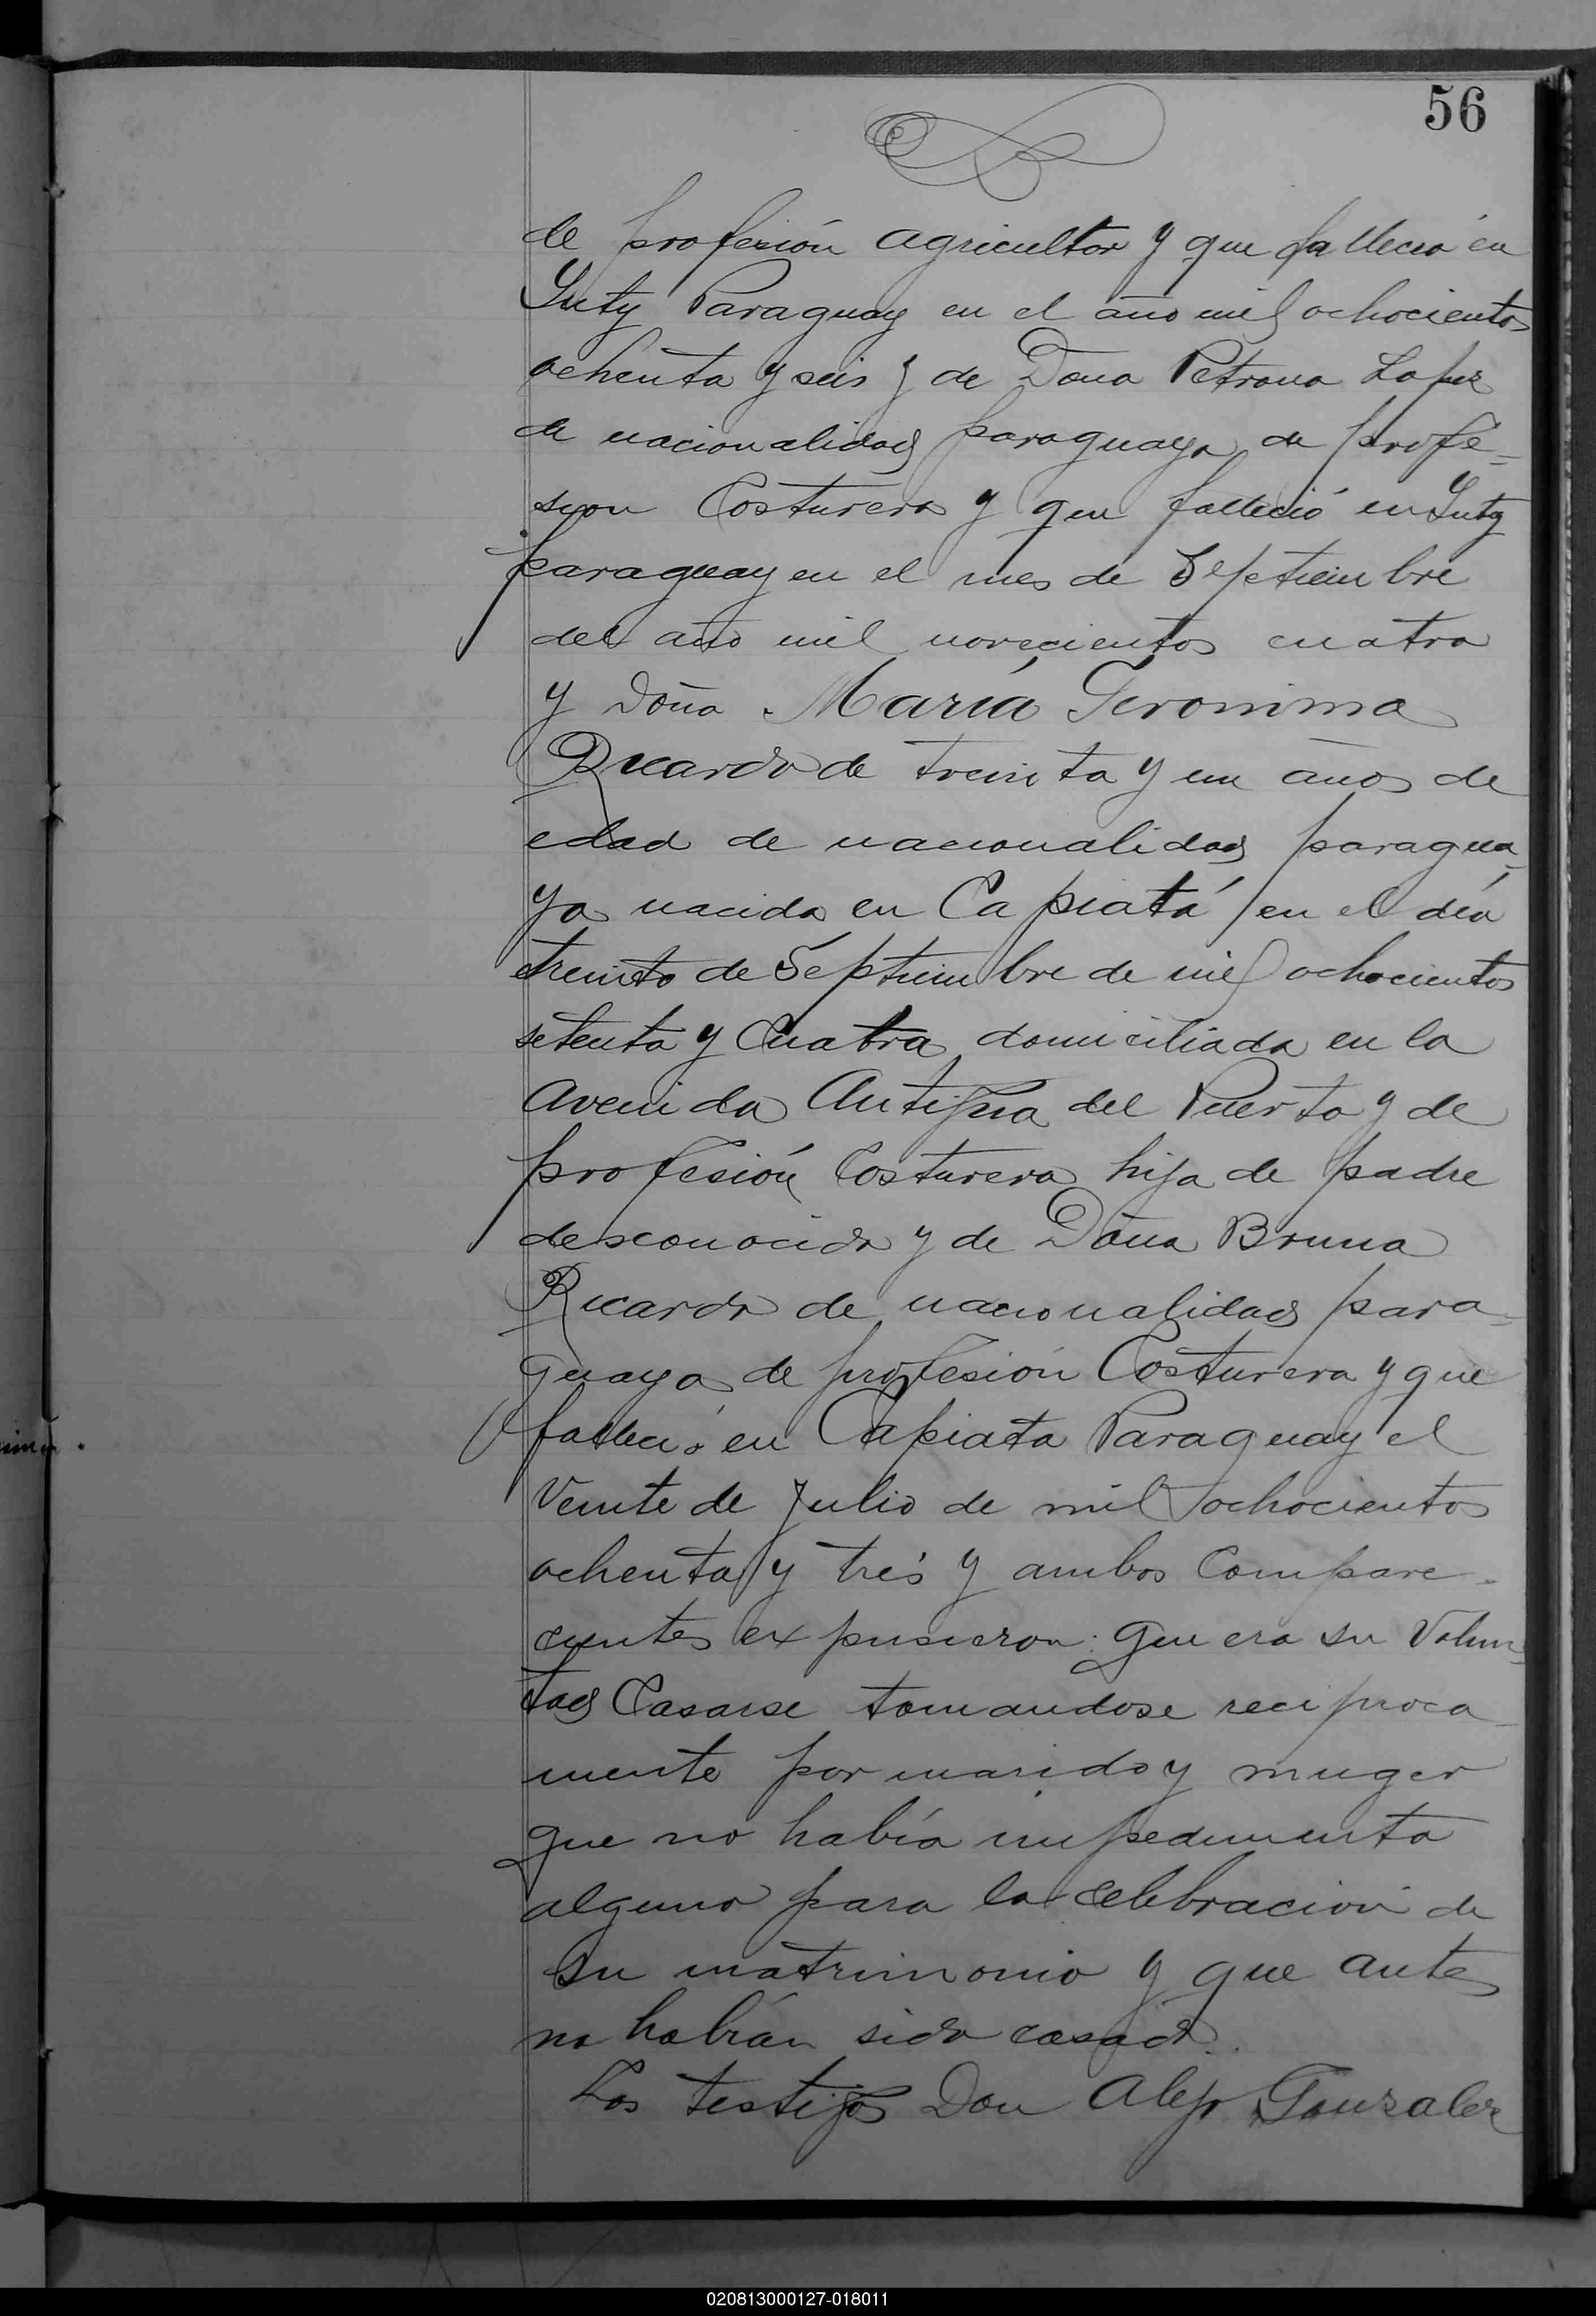 56
de profesión agricultor y que fallecio en
Yuty Paraguay en el año mil ochocientos
ochenta y seis y de Doña Petrona Lopez
de nacionalidad paraguaya de profe=
sion Costurera y que falleció en Yuty
paraguay en el mes de Septiembre
del año mil novecientos cuatro
y Doña María Geronima
Ricardo de treinta y un años de
edad de nacionalidad paragua=
ya nacida en Capiatá en el día
treinta de Septiembre de mil ochocientos
setenta y Cuatro domiciliada en la
Avenida Antigua del Puerto y de
profesión Costurera hija de padre
desconocido y de Doña Bruna
Ricardo de nacionalidad para=
guaya de profesión Costurera y que
falleció en Capiata Paraguay el
Veinte de Julio de mil ochocientos
ochenta y trés y ambos Compare-
cientes expusieron: que era su Volun=
tad Casarse tomandose reciproca-
mente por marido y muger
que no había impedimento
alguno para la celebracion de
su matrimonio y que antes
no habían sido casado.
Los testigos Don Alejo Gonzalez
020813000127-018011